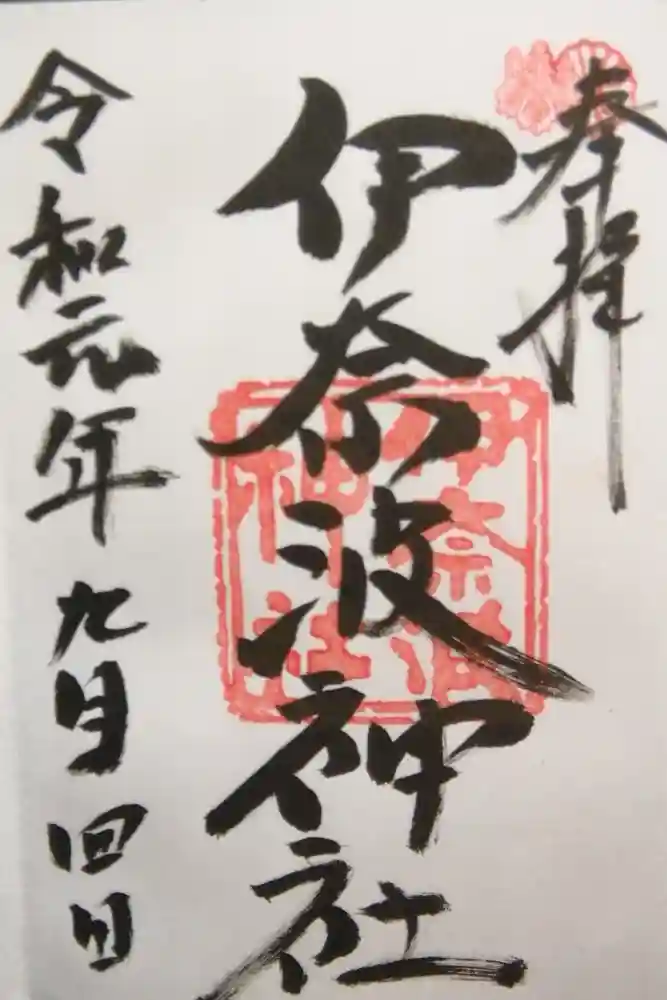 奉拝
伊奈波神社
伊奈波
神社
令和元年九月四日